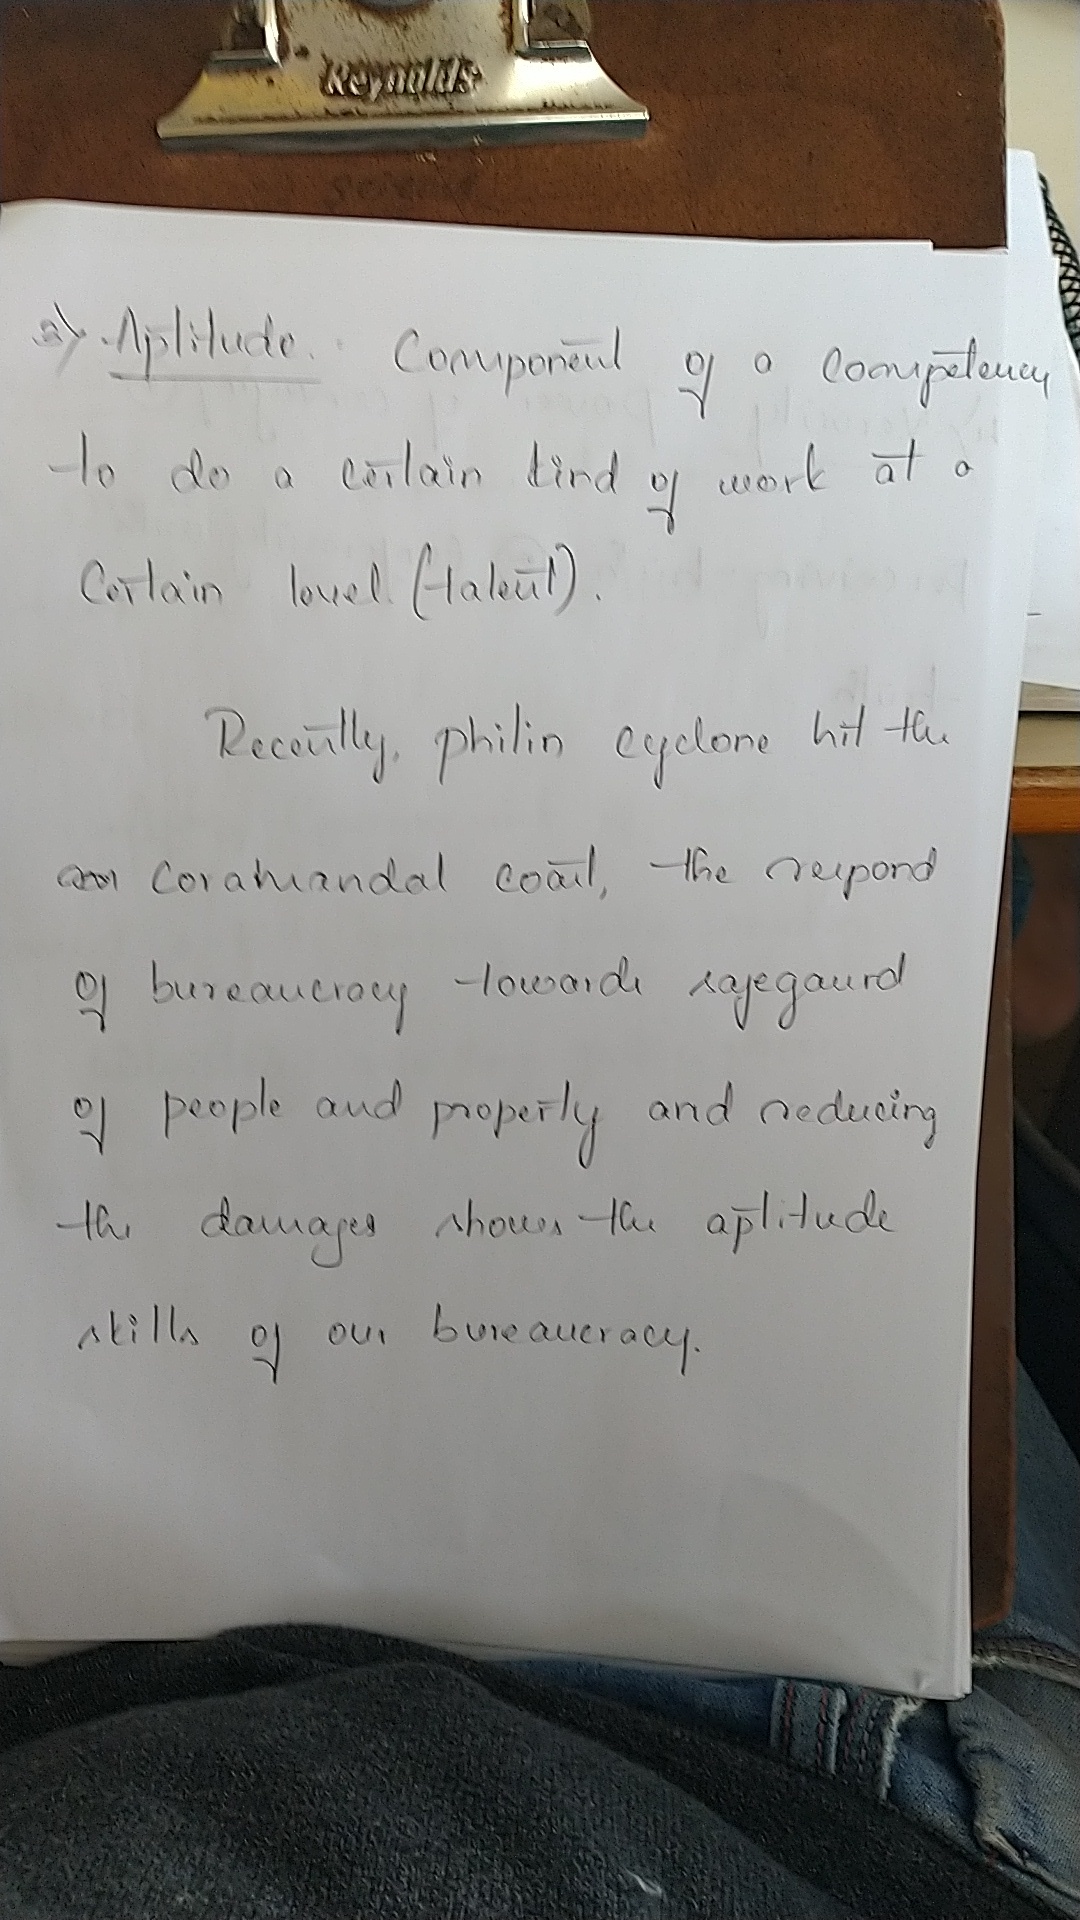 Reynolds
a) Aptitude. Component of a Competency
to do a certain kind of work at a
Certain level (talent).
Recently, philin cyclone hit the
Coramandal coast, the respond
of bureaucracy towards safegaurd
of people and property and reducing
the damages shows the aptitude
skills of our bureaucracy.